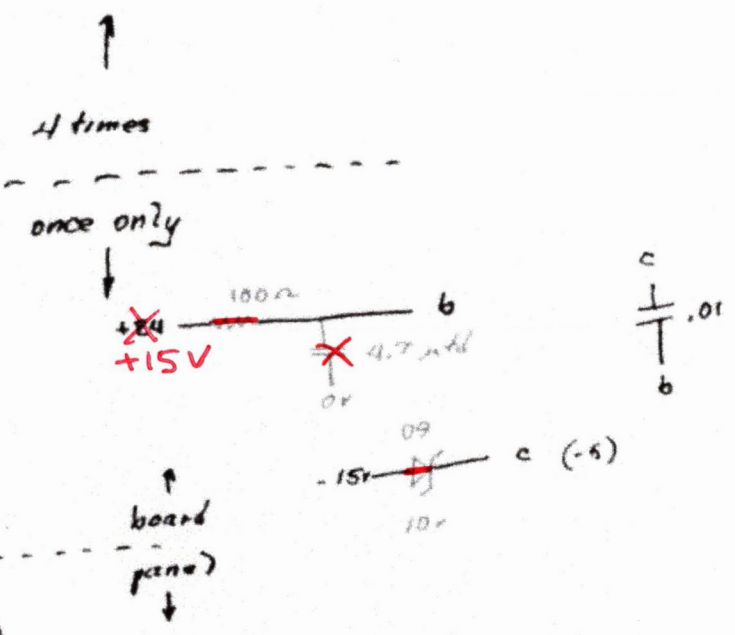 4 times
once only
100Ω
+24
b
+15V
4.7 μfd
0v
c
.01
b
09
-15v
c (-5)
10v
board
panel